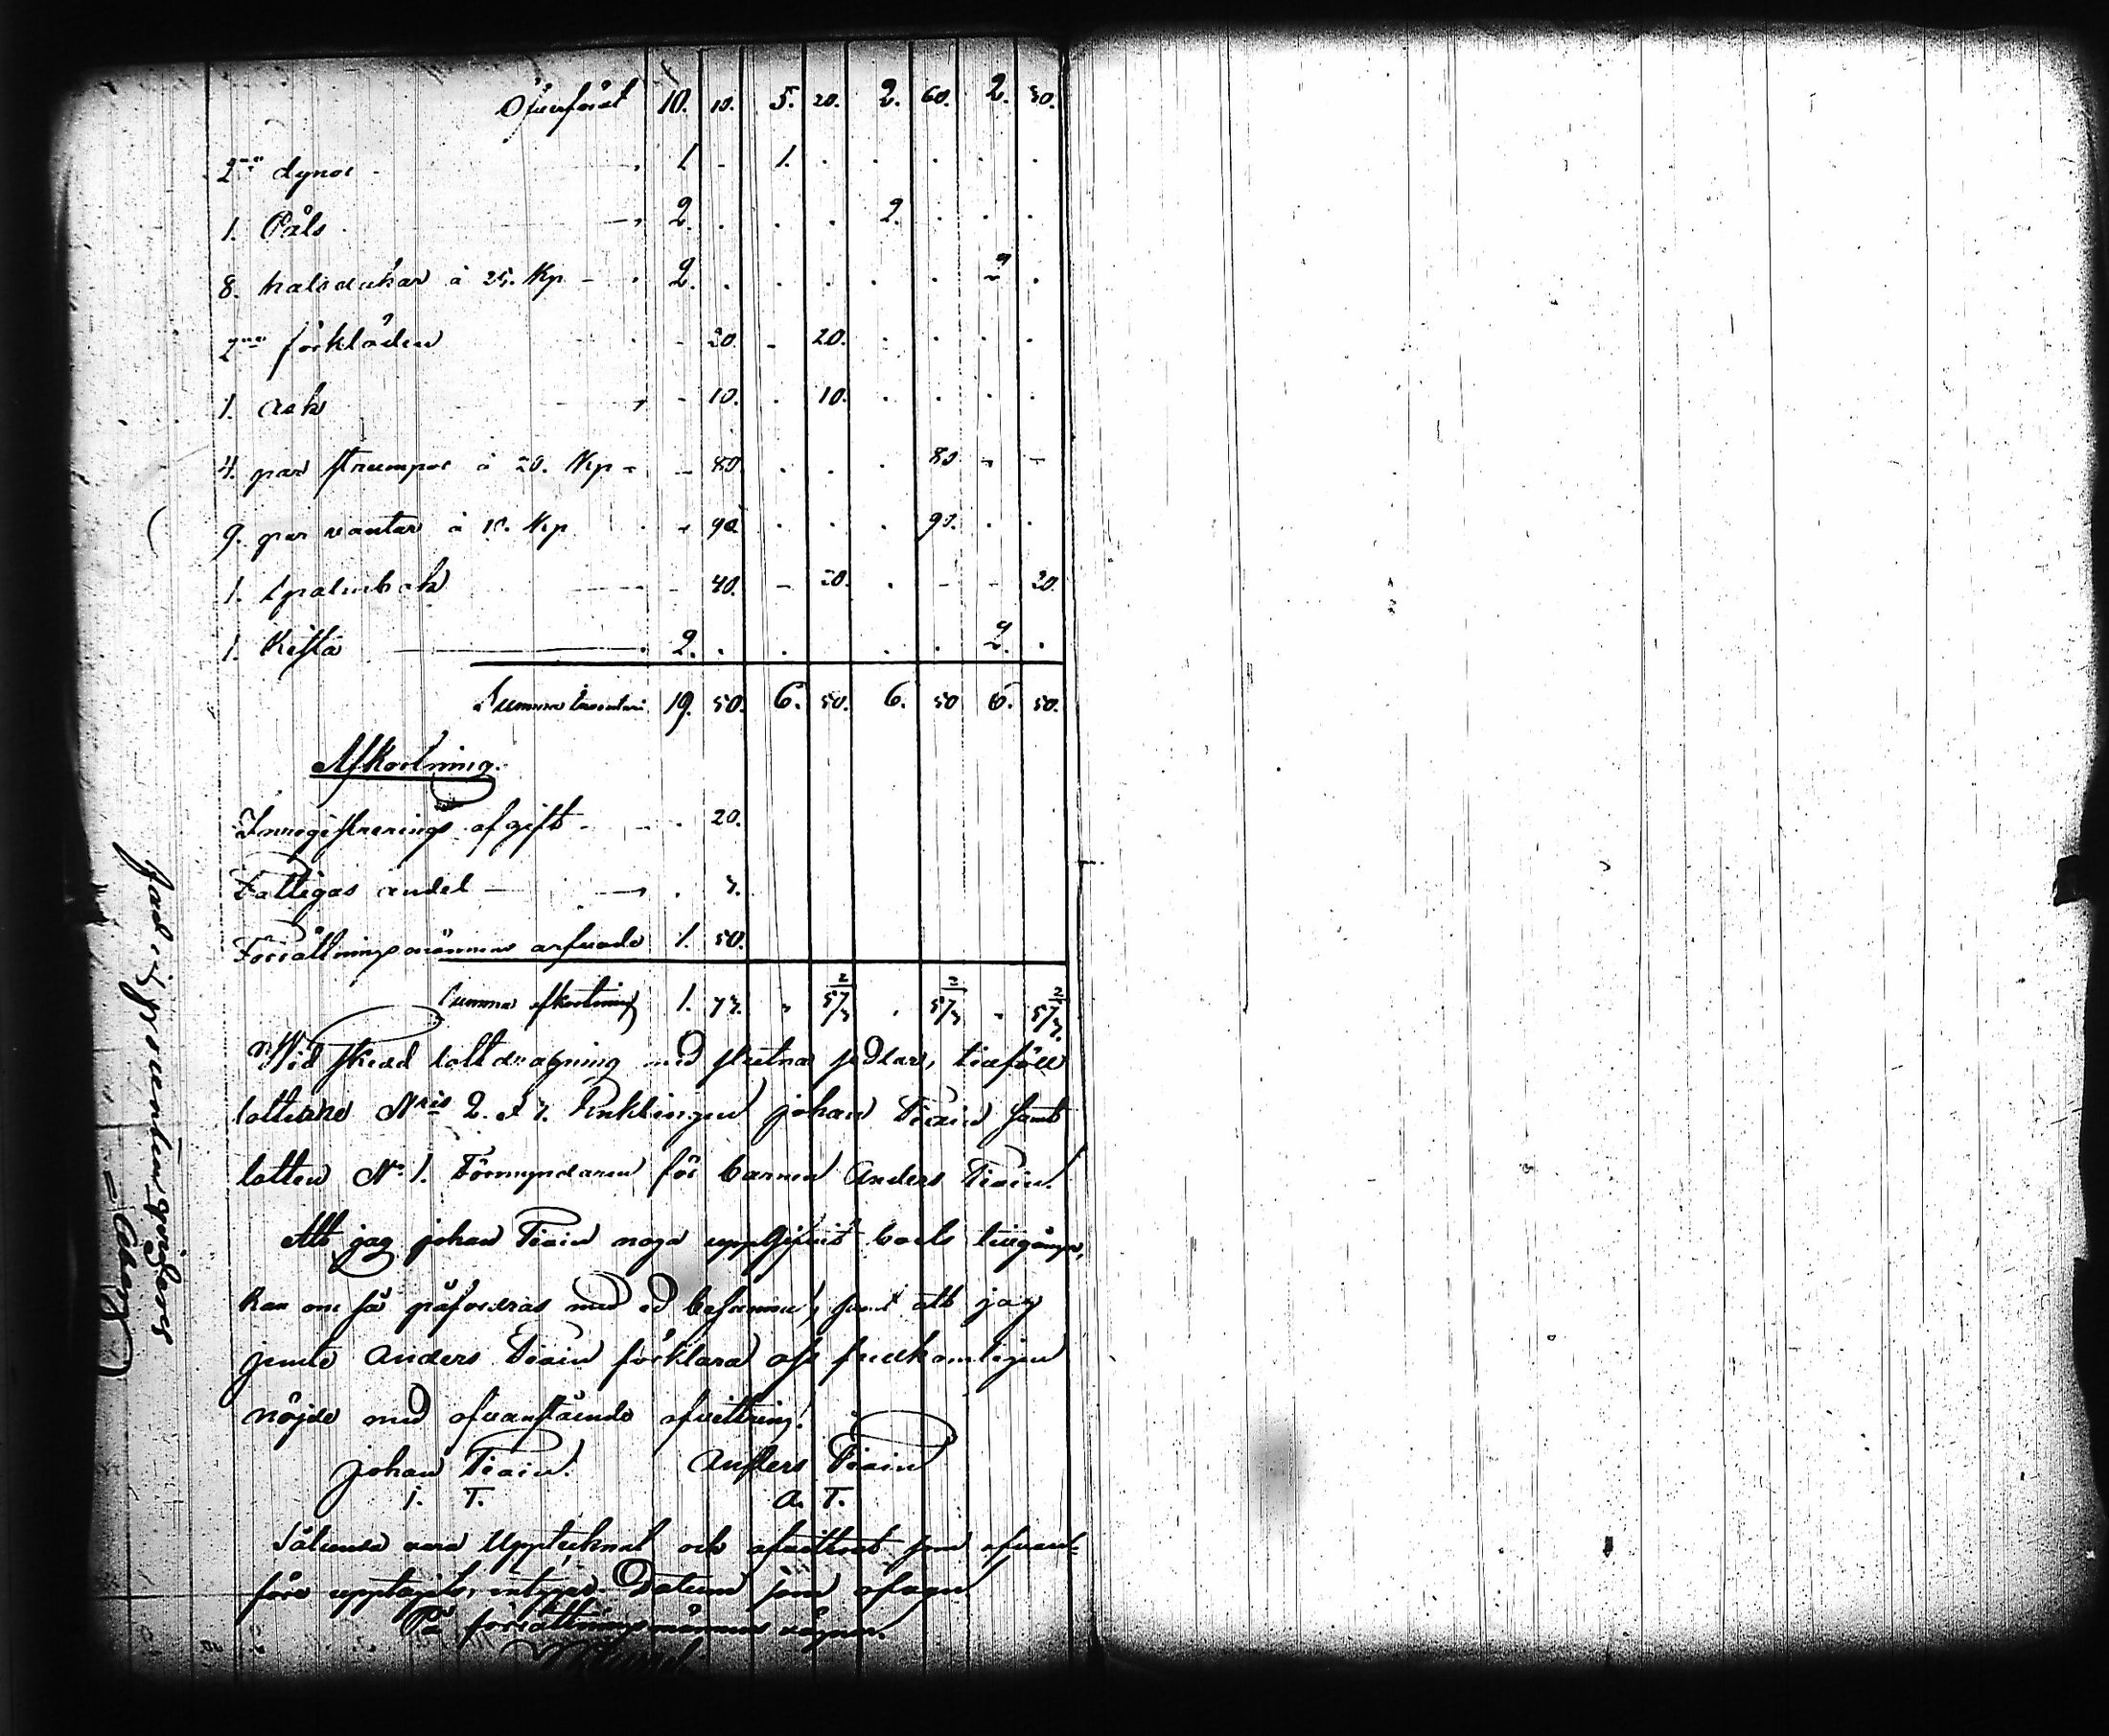 Öfverfört 10. 10. 5. 20. 2. 60. 2. 30.
2ne dynor - 1 - 1. . . . . .
1. Päls - 2. . . . 2. . . .
8. halsdukar à 25. Kp - 2. . . . . . 2 .
2ne förkläden - 20. - 20. . . . .
1. ask - 10. . 10. . . . .
4. par strumpor à 20. Kp - - 80 . . . 80 - -
9. par vantar à 10. Kp - 90 . . . 90. . .
1. spalmbok - 40. - 20. . - - 20.
1. Kista - 2. . . . . 2. .
Summa 19. 50. 6. 50. 6. 50 6. 50.
Afkortning.
Inregistrerings afgift - 20.
Fattigas andel - 3.
Förrättningsmännens arfvode 1. 50.
Summa afkortning 1. 73. " 57 2/3 . 57 2/3 " 57 2/3.
Wid skedd lottdragning med slutna sedlar, tillföll
lotterne Nris 2. et 3. Enklingen Johan Tiain samt
lotten No 1. Förmyndaren för barnen Anders Tiain.
Att jag Johan Tiain noga uppgifvit boets tillgångar,
kan om så påfordras med ed besanna, samt att jag
jemte Anders Tiain förklara oss fullkomligen
nöjde med ofvanstående afvittring.
Johan Tiain. Anders Tiain
J. T. A. T.
Sålunda vara Upptecknat och afvittrat som ofvan-
före upptagits, intygar. Datum som ofvan
På förrättningsmännens vägnar.